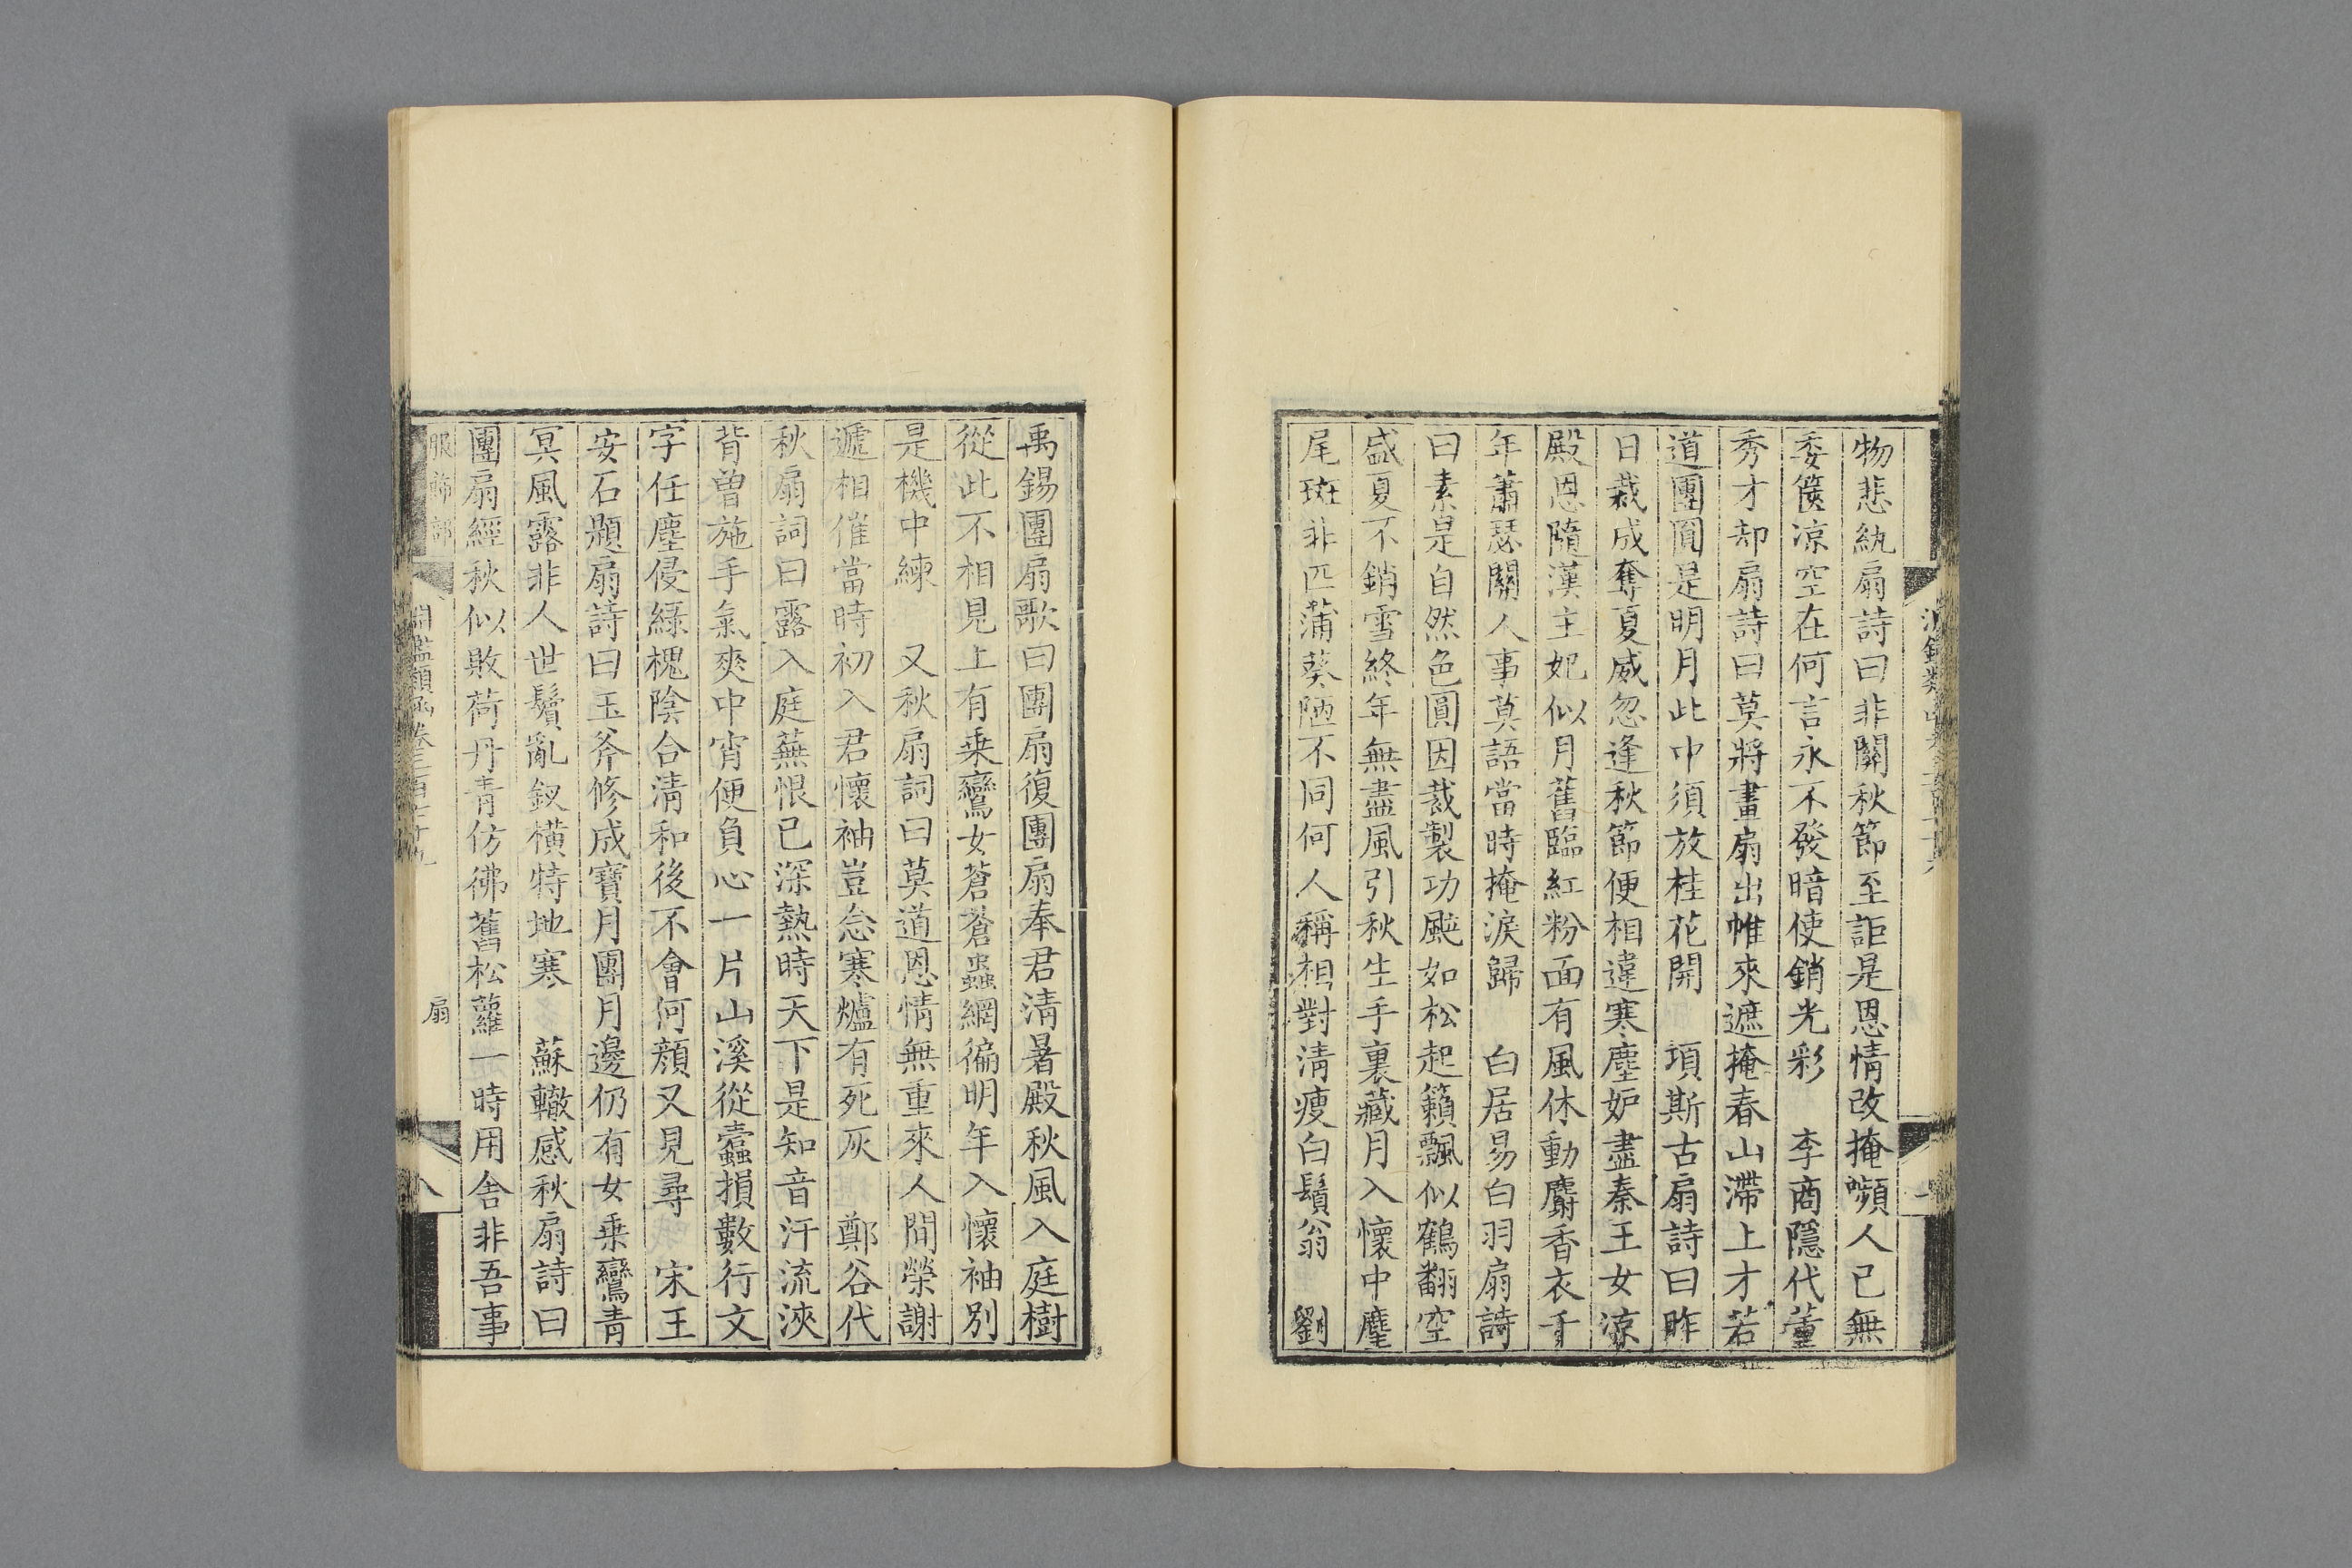 物悲紈扇詩曰非關秋節至詎是恩情改掩嚬人已無
委篋涼空在何言永不發暗使銷光彩　李商隱代董
秀才却扇詩曰莫將畫扇出帷來遮掩春山滯上才若
道團圓是明月此中須放桂花開　項斯古扇詩曰昨
日裁成奪夏威忽逢秋節便相違寒塵妒盡秦王女涼
殿恩隨漢主妃似月舊臨紅粉面有風休動麝香衣千
年蕭瑟關人事莫語當時掩淚歸　白居易白羽扇詩
曰素是自然色圓因裁製功颸如松起籟飄似鶴翻空
盛夏不銷雪終年無盡風引秋生手裏藏月入懷中麈
尾斑非匹蒲葵陋不同何人稱相對清瘦白鬚翁　劉
禹錫團扇歌曰團扇復團扇奉君清暑殿秋風入庭樹
從此不相見上有乗鸞女蒼蒼蟲網徧明年入懷袖別
是機中練　又秋扇詞曰莫道恩情無重來人間榮謝
遞相催當時初入君懷袖豈念寒爐有死灰　鄭谷代
秋扇詞曰露入庭蕪恨已深熱時天下是知音汗流浹
背曽施手氣爽中宵便負心一片山溪從蠹損數行文
字任塵侵綠槐陰合清和後不會何顏又見尋　宋王
安石題扇詩曰玉斧修成寶月團月邊仍有女乗鸞青
冥風露非人世鬢亂釵橫特地寒　蘇轍感秋扇詩曰
團扇經秋似敗荷丹青仿彿舊松蘿一時用舍非吾事
服飾部　淵鑑類函卷三百七十九　扇　八